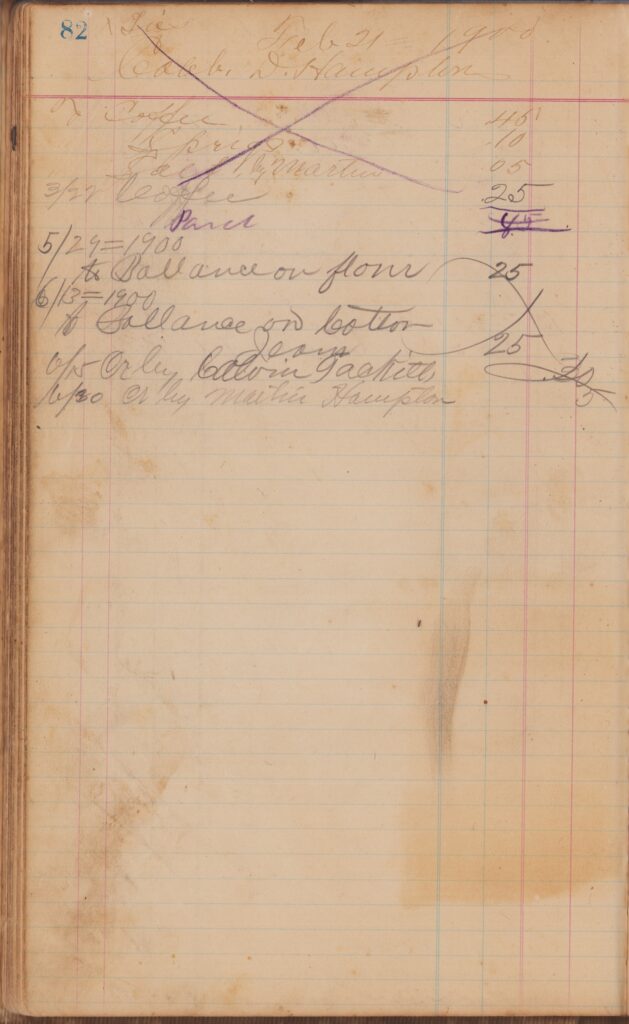 82
Feb 21 = 1900
Caleb. D. Hampton
To Coffee 45
10
By Martin 05
3/22 Coffee 25
Paid 45
5/29=1900
to Ballance on flour 25
6/13=1900
to Ballance on Cotton
Jeans 25
6/15 Cr by Calvin Tackitts
6/30 Cr by Martin Hampton 5